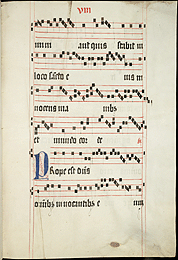 VIII
aut quis stabit in
loco sancto e ius in
nocens ma nibus
et mundo cor de
Prope est dns
omnibus invocantibus e um